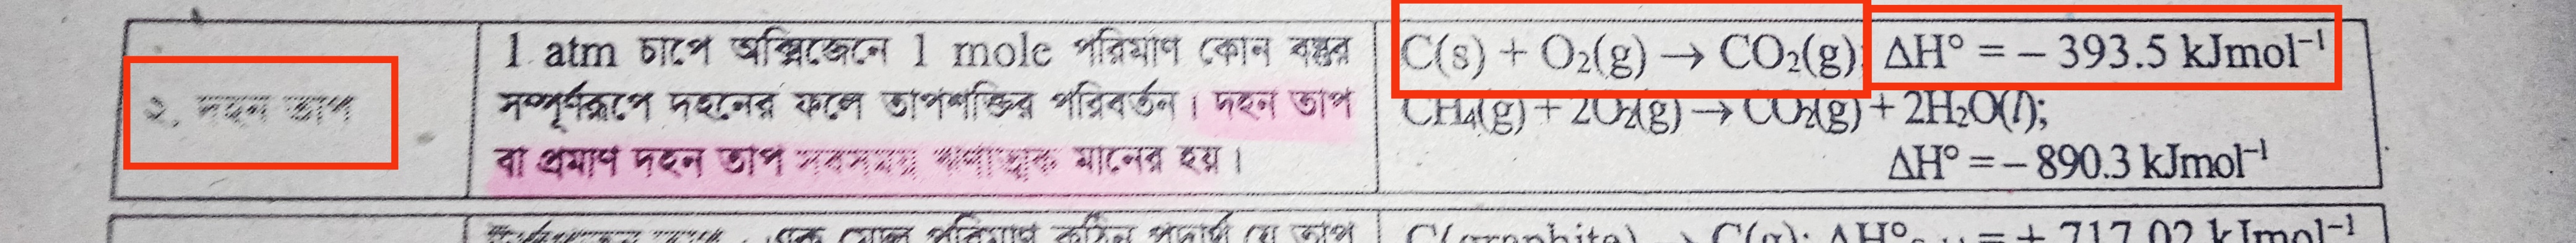 ২. দহন তাপ
1 atm চাপে অক্সিজেনে 1 mole পরিমাণ কোন বস্তুর
সম্পূর্ণরূপে দহনের ফলে তাপশক্তির পরিবর্তন। দহন তাপ
বা প্রমাণ দহন তাপ সবসময় ঋণাত্মক মানের হয়।
C(s) + O₂(g) → CO₂(g); ΔH° = – 393.5 kJmol⁻¹
CH₄(g) + 2O₂(g) → CO₂(g) + 2H₂O(l);
ΔH° = – 890.3 kJmol⁻¹
এক মোল পরিমাণ কঠিন পদার্থ যে তাপ
C(graphite) → C(g); ΔH° = + 717.02 kJmol⁻¹